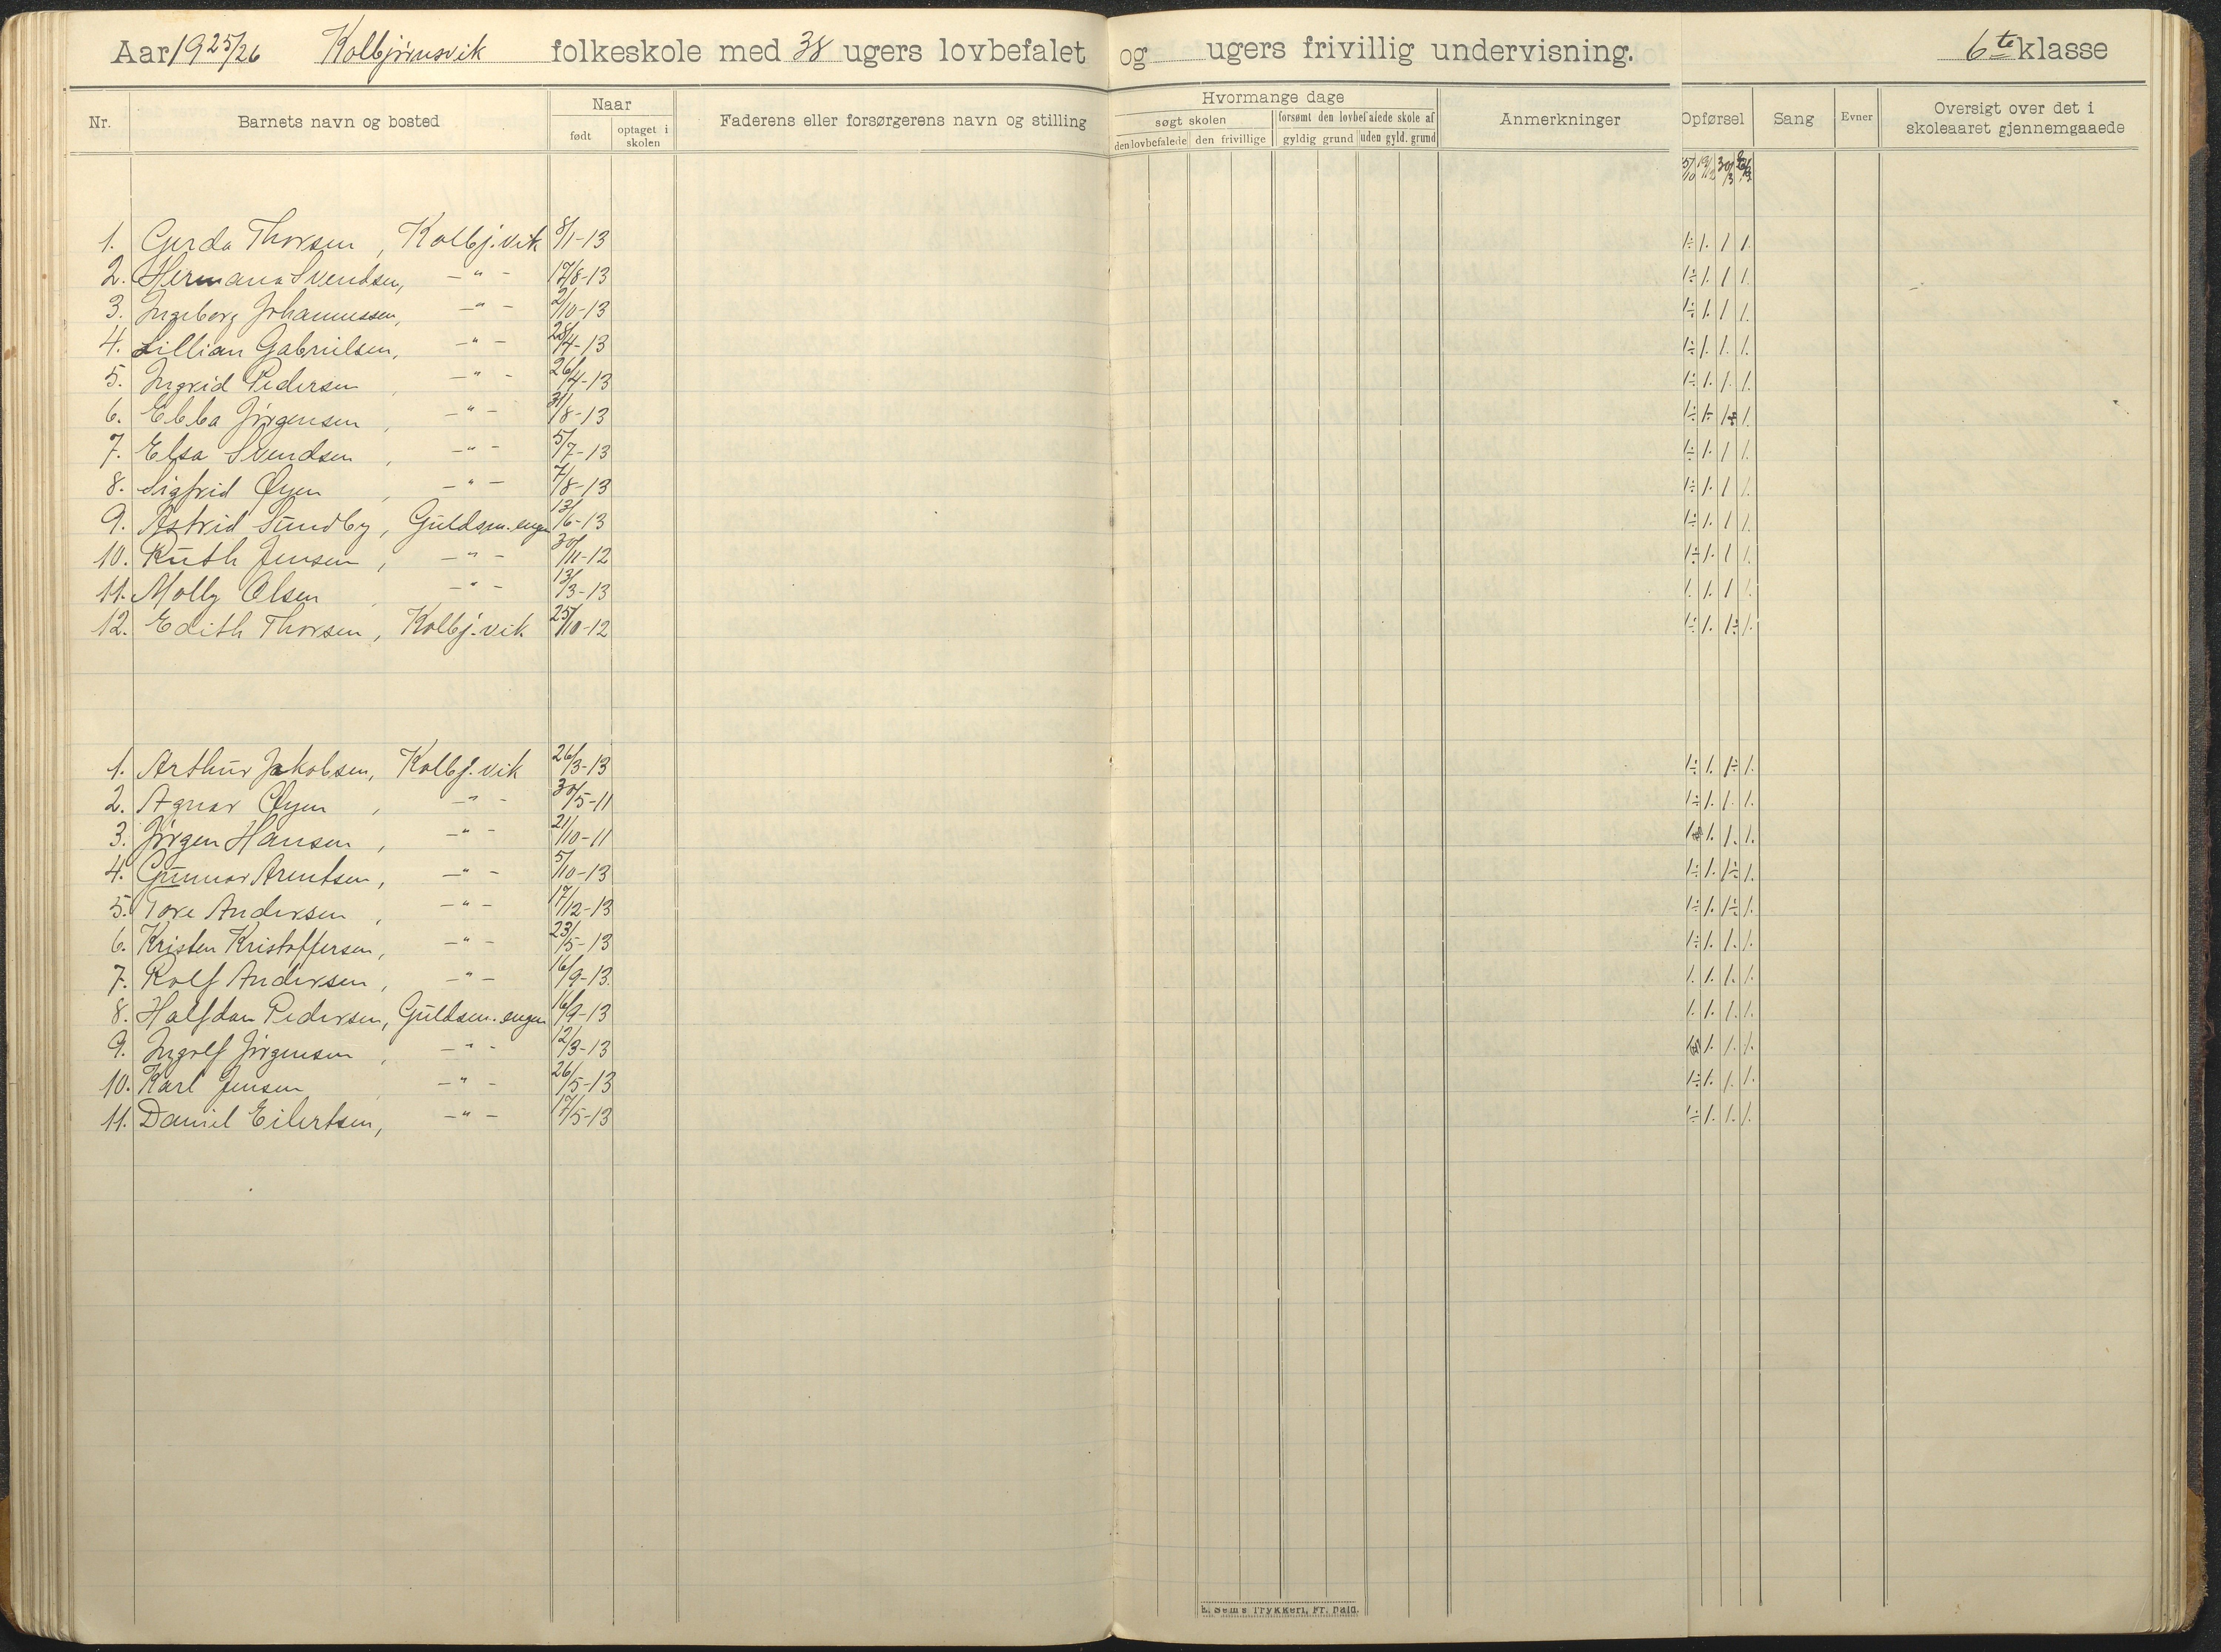 Aar 1925/26 Kolbjørnsvik folkeskole med 38 ugers lovbefalet og ugers frivillig undervisning. 6te klasse
Nr. Barnets navn og bosted Naar Faderens eller forsørgerens navn og stilling Hvormange dage Anmerkninger Opførsel Sang Evner Oversigt over det i skoleaaret gjennemgaaede
født optaget i skolen søgt skolen forsømt den lovbefalede skole af
den lovbefalede den frivillige gyldig grund uden gyld. grund
5/10 19/12 30/3
1. Gerda Thorsen, Kolbj.vik 8/1-13 1÷ 1. 1 1.
2. Hermana Svendsen, -"- 17/8-13 1÷ 1. 1 1.
3. Ingeborg Johannessen, -"- 2/10-13 1÷ 1. 1 1.
4. Lillian Gabrielsen, -"- 28/4-13 1÷ 1. 1. 1.
5. Ingrid Pedersen, -"- 26/4-13 1÷ 1. 1. 1.
6. Ebba Jørgensen, -"- 31/8-13 1÷ 1÷ 1÷ 1.
7. Elsa Svendsen, -"- 5/7-13 1÷ 1. 1 1.
8. Sigfrid Øyen, -"- 7/8-13 1÷ 1. 1 1.
9. Astrid Sundby, Guldsm.engen 13/6-13 1÷ 1. 1 1.
10. Ruth Jensen, -"- 30/11-12 1÷ 1. 1 1.
11. Molly Olsen, -"- 13/3-13 1. 1. 1 1.
12. Edith Thorsen, Kolbj.vik 25/10-12 1÷ 1. 1÷ 1.
1. Arthur Jakobsen, Kolbj.vik 26/3-13 1÷ 1. 1÷ 1.
2. Agnar Øyen, -"- 30/5-11 1÷ 1. 1. 1.
3. Jørgen Hansen, -"- 21/10-11 1. 1. 1.
4. Gunnar Arentsen, -"- 5/10-13 1÷ 1. 1÷ 1.
5. Tore Andersen, -"- 17/12-13 1÷ 1. 1÷ 1.
6. Kristen Kristoffersen, -"- 23/5-13 1÷ 1. 1. 1.
7. Rolf Andersen, -"- 16/9-13. 1. 1. 1. 1.
8. Halfdan Pedersen, Guldsm.engen 16/9-13 1. 1. 1. 1.
9. Ingolf Jørgensen, -"- 12/3-13 1. 1. 1.
10. Karl Jensen -"- 26/5-13 1÷ 1. 1. 1.
11. Daniel Eilertsen, -"- 17/5-13 1÷ 1. 1. 1.
E. Sem's Trykkeri, Fr.hald.